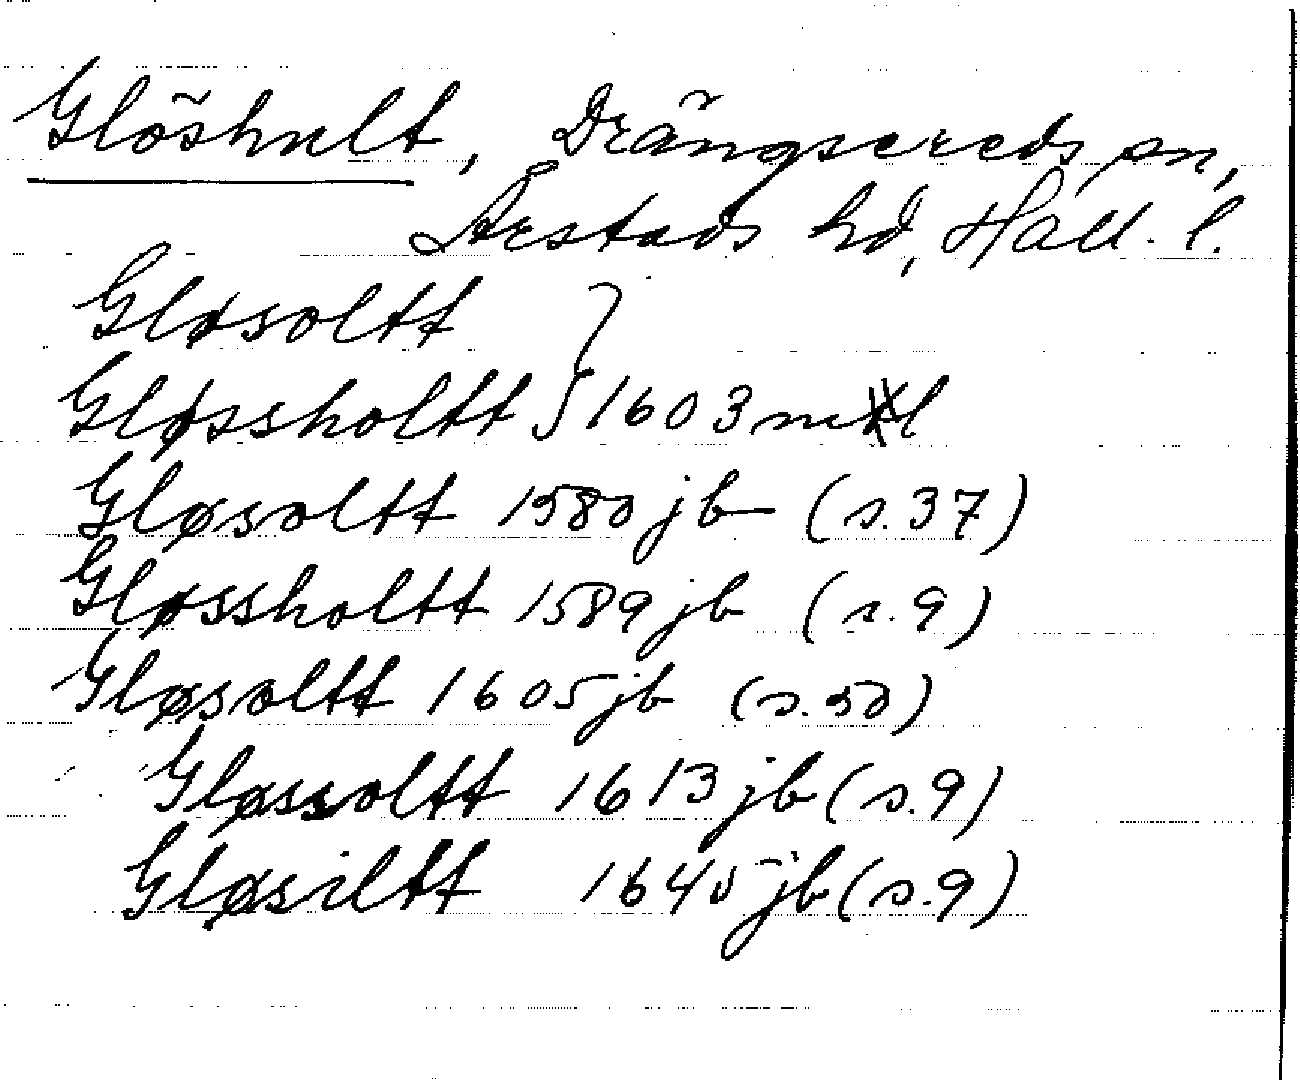 Glöshult, Drängsereds sn,
Årstads hd, Hall. l.
Gløsoltt }
Gløssholtt } 1603 ml
Gløsoltt 1580 jb (s. 37)
Gløssholtt 1589 jb (s. 9)
Gløsoltt 1605 jb (s. 50)
Gløssoltt 1613 jb (s. 9)
Gløsiltt 1645 jb (s. 9)